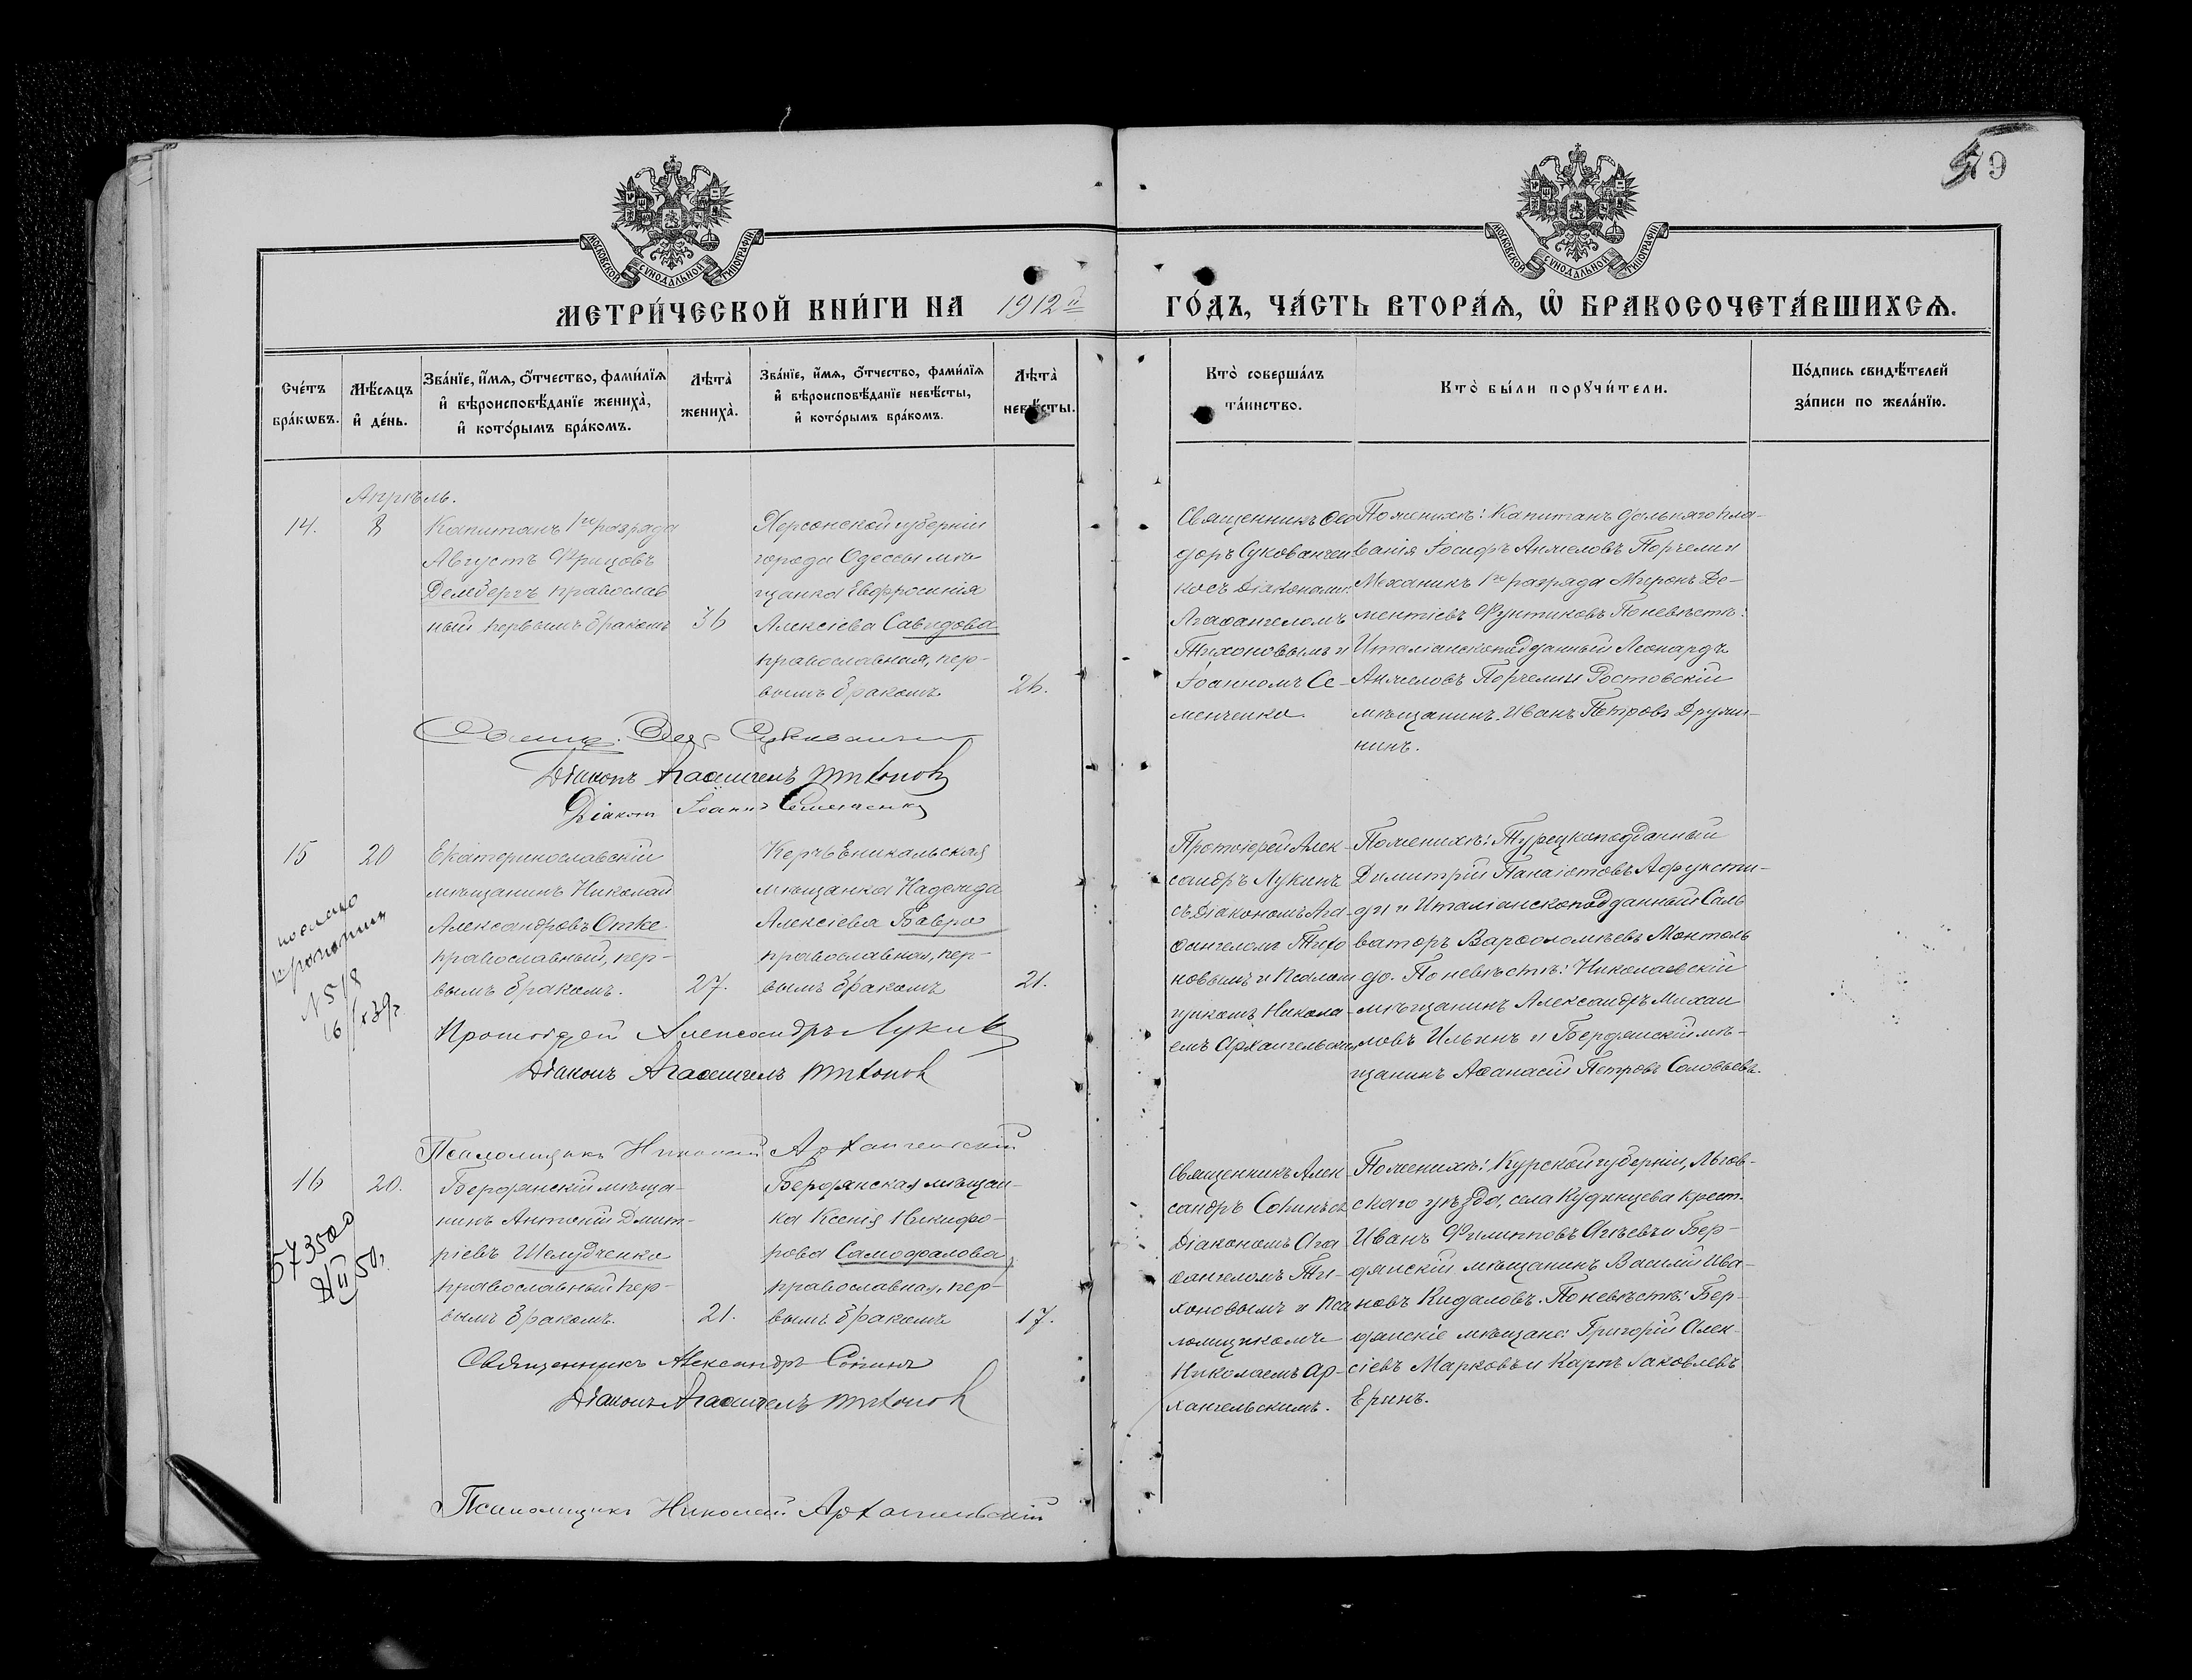 579
МОСКОВСКОЙ СѴНОДАЛЬНОЙ ТИПОГРАФІИ
МОСКОВСКОЙ СѴНОДАЛЬНОЙ ТИПОГРАФІИ
МЕТРИ́ЧЕСКОЙ КНИ́ГИ НА 1912й ГО́ДЪ, ЧА́СТЬ ВТОРА́Ѧ, Ѽ БРАКОСОЧЕТА́ВШИХСѦ.
Сче́тъ бра́кѡвъ.
Мѣ́сѧцъ и҆ де́нь.
Зва́нїе, и҆́мѧ, ѻ҆́тчество, фами́лїѧ и҆ вѣроисповѣ́данїе жениха̀, и҆ кото́рымъ бра́комъ.
Лѣ́та̀ жениха̀.
Зва́нїе, и҆́мѧ, ѻ҆́тчество, фами́лїѧ и҆ вѣроисповѣ́данїе невѣ́сты, и҆ кото́рымъ бра́комъ.
Лѣ́та̀ невѣ́сты.
Кто̀ соверша́лъ та́инство.
Кто̀ бы́ли порꙋчи́тели.
По́дпись свидѣ́телей за́писи по жела́нїю.
Апрѣль.
14.
8
Капитанъ 1го разряда
Августъ Фрицовъ
Делвергъ православ
ный первымъ бракомъ
36
Херсонской губерніи
города Одессы мѣ-
щанка Евфросинія
Алексіева Савидова
православная, пер-
вымъ бракомъ
26.
Священникъ Ѳео
доръ Сукованчен
ко съ Діаконами:
Агаѳангеломъ
Тихоновымъ и
Іоанномъ Се-
менченко
По женихѣ: Капитанъ дальняго пла-
ванія Іосифъ Анжеловъ Порчели и
Механикъ 1го разряда Миронъ Де-
ментіевъ Фунтиковъ По невѣстѣ:
Италіанскоподданный Леонардъ
Анжеловъ Порчели и Ростовскій
мѣщанинъ Иванъ Петровъ Дружи-
нинъ.
Діаконъ Агаѳангелъ Тихоновъ
Діаконъ Іоаннъ Семенченко
15
20
Екатеринославскій
мѣщанинъ Николай
Александровъ Отке
православный, пер-
вымъ бракомъ.
27.
Керчь Еникальская
мѣщанка Надежда
Алексіева Бавро
православная, пер-
вымъ бракомъ
21.
Протоіерей Алек-
сандръ Лукинъ
съ Діакономъ Ага-
ѳангеломъ Тихо
новымъ и Псалом
щикомъ Никола-
емъ Архангельскимъ
По женихѣ: Турецкоподданный
Димитрій Панаіотовъ Афуксти-
ди и Италіанскоподданный Саль
ваторъ Варѳоломѣевъ Монтоль
до. По невѣстѣ: Николаевскій
мѣщанинъ Александръ Михаи
ловъ Ильинъ и Бердянскій мѣ-
щанинъ Аѳанасій Петровъ Соловьевъ.
послано
N 518
Протоіерей Александръ Лукинъ
Діаконъ Агаѳангелъ Тихоновъ
Псаломщикъ Николай Архангельскій
16
20.
Бердянскій мѣща-
нинъ Антоній Дмит-
ріевъ Шелудченко
православный пер-
вымъ бракомъ.
21.
Бердянская мѣщан-
ка Ксенія Никифо-
рова Самофалова
православная, пер-
вымъ бракомъ
17.
Священникъ Алек-
сандръ Сопинъ съ
Діакономъ Ага-
ѳангеломъ Ти-
хоновымъ и Пса
ломщикомъ
Николаемъ Ар-
хангельскимъ.
По женихѣ: Курской губерніи, Льгов-
скаго уѣзда, села Кудинцева крест.
Иванъ Филипповъ Агѣевъ и Бер-
дянскій мѣщанинъ Василій Ива-
новъ Кидаловъ. По невѣстѣ: Бер-
дянскіе мѣщане: Григорій Алек-
сіевъ Марковъ и Карпъ Іаковлевъ
Еринъ.
573500
Священникъ Александръ Сопинъ
Діаконъ Агаѳангелъ Тихоновъ
Псаломщикъ Николай Архангельскій